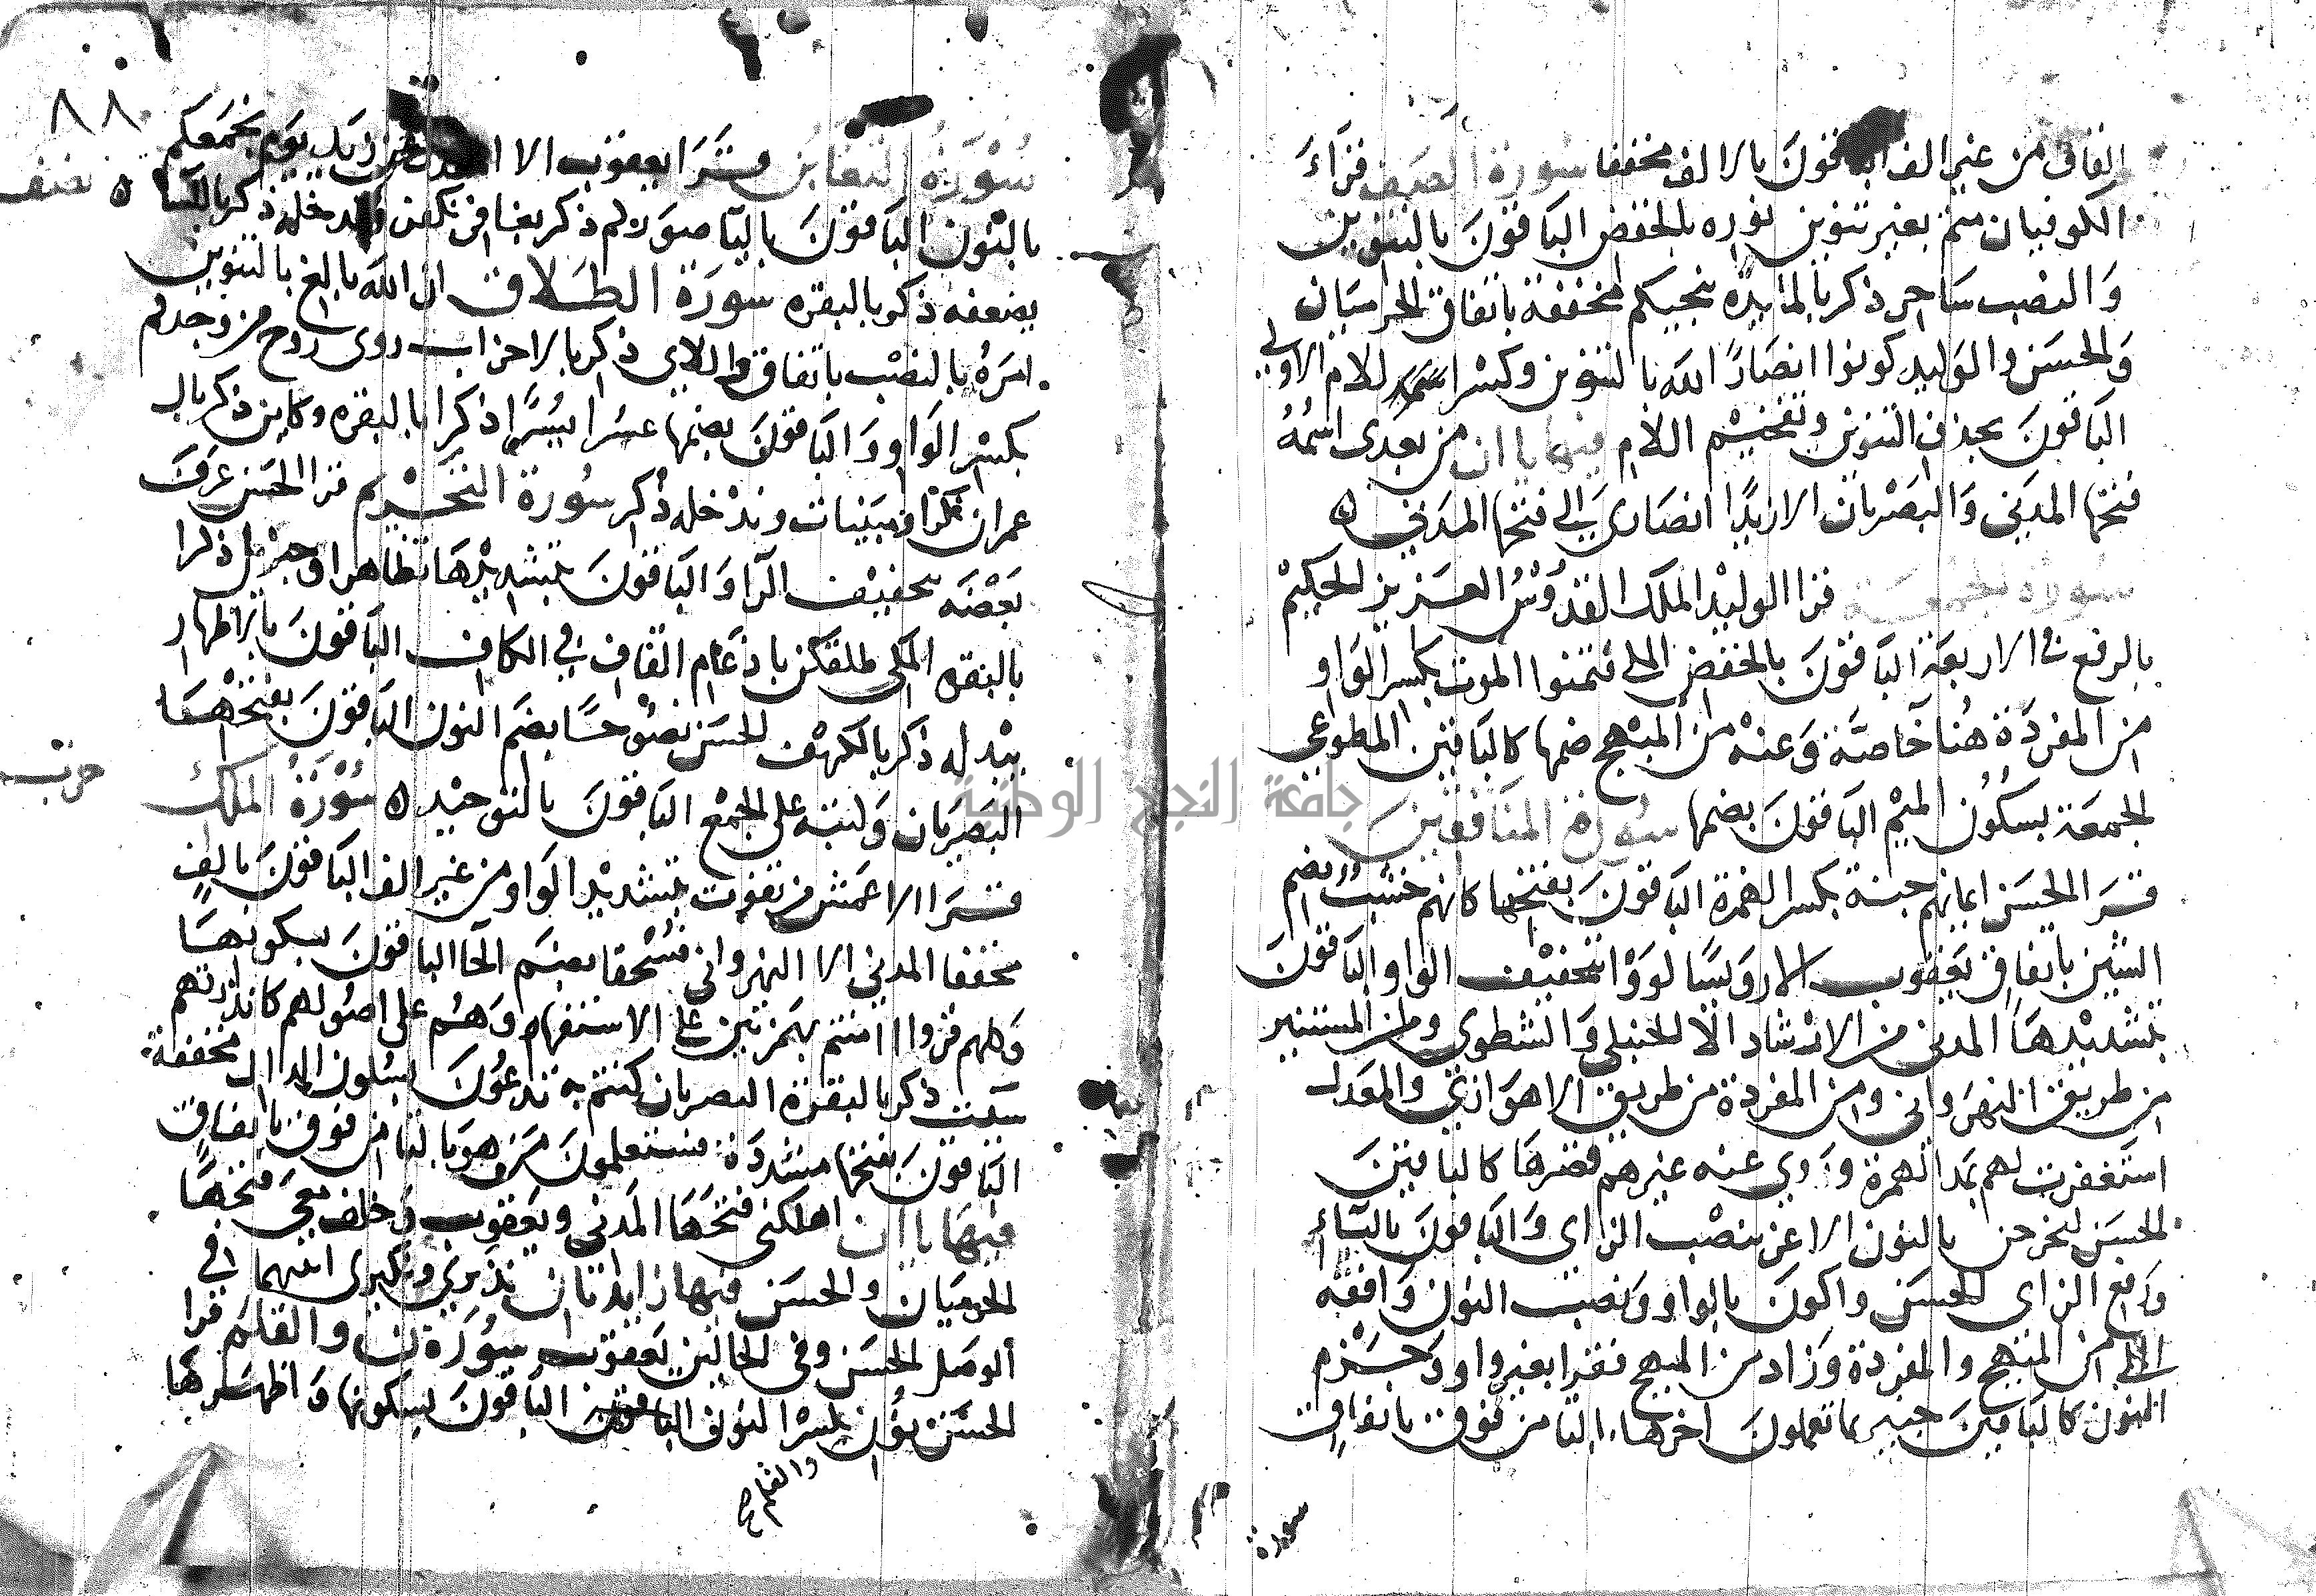 القاف من غير الف الباقونَ بالالف مخففا سورة الصف قرآءَ
الكوفيان متم بغير تنوين نوره بالخفض الباقونَ بالتنوين
وَالنصب سَاحر ذكر بالمايدَه ينجيكم مخففة باتفاق الحرميَان
وَالحسَن والوَليد كونوا انصَارًا الله بالتنوين وكسْر لام الاولي
الباقونَ بحذف التنوين وتفخيْم اللام فيها يا ان من بعدى اسْمُهُ
فتحَها المدَنى وَالبصَرْيان الا زيدًا انصَارى اليَ فتحَها المدَني ه
سورة الجمعة قرا الوليْد الملك القدوْسُ العزيز الحكيْم
بالرفع في الاربعَة الباقونَ بالخفض فتمنوا الموت بكسر الوَاو
من المفردَة هُنا خاصَّة وَعنهْ من المبْهج ضمها كالبَاقين المطوعى
الجمعَة بسكُون الميْم الباقونَ بضمها سورة المنافقين
قرَا الحسَن ايمانهم جنة بكسر الهمزة الباقونَ بفتحها كانهم خشبٌ بضم
الشين باتفاق يَعقوب الا رويسًا لووْا بتخفيْف الواو والبَاقونَ
بتشديْدهَا المدنى من الارْشاد الا الحنبلى وَالشطوى ومن المستنير
من طريق النهرَوانى ومن المفردة من طريق الاهوَازىّ والمعَدل
استَغفرت لهم بمَد الهمزة ورَوي عنه غيرهم قصْرهَا كالباقينَ
الحسَن لنخرجن بالنون الاعز بنصْب الزاي وَالبَاقونَ باليآء
وَرَفع الزاى الحسَن واكونَ بالواو وَنصب النون وَافقه
من المبْهج والمفردة وَزاد من المبهج فقرا بغير واو وَجَزم
النون كالبَاقينَ خبير بما تعملونَ اخرها، التا من فوق باتفاق
سورة
٨٨
سُوْرَةُ التغابُن قَرَا يعقوب الا يوَم نجمَعكم
نصف
بالنون البَاقونَ باليآ صوَركم ذكر بغافر نكفر وندخله ذكر بالنسَا ه
يضعفه ذكر بالبقره سُورَة الطلَاق ان الله بالغ بالتنوين
امرَهُ بالنصْب باتفاق واللاى ذكر بالاحزاب روى رَوح من وجدكم
بكسْر الوَاو وَالبَاقونَ بضمها عسُرا يسُرًا ذكرا بالبقره وكاين ذكر بال
عمران نكرا ومبَينات وندْخله ذكر سُورة التحَريم قرا الحسَن عرفَ
بَعْضَه بتخفيْف الرا وَالبَاقونَ بتشديْدهَا تظاهرا وجبْريل ذكرا
بالبقره المكى طلقكن بادغام القاف في الكاف الباقونَ بالاظهار
يبْدله ذكر بالكهْف الحسَن نصُوحًا بضم النون البَاقونَ بفتحْهَا
حزب
البَصَريان وَكتبه على الجمْع الباقونَ بالتوحيْد ه سُوْرَةُ الملك
قرَا الاعمَش من تفوت بتشديْد الوَاو من غير الف البَاقونَ بالفٍ
مخففا المدني الا النهرواني فسُحقا بضَم الحا الباقونَ بسكونهَا
وَكلهم قروا اامنتم بهمزتين على الاستفهام وَهُم على اصُولهم كانذرتهم
سيئت ذكر بالبقرة البصريان كنتم به تدعوُنَ بسكون الدال مخففة
البَاقونَ بفتحها مشددَة فستعلمونَ مَن هو بالتا من فوق باتفاق
فيهَا يا ان اهلكنى فتحَهَا المَدنى ويَعقوب وَخلف معىَ فتحَها
الحرميَان والحسَن فيها زايدتان نذيري ونكيرى اثبتهما في
الوصل الحسَن وفى الحالين يَعقوب سوُرَة ن والقلم قرا
الحسَن نون بكسْر النون الباقونَ بسكونها وَاظهَرهَا
والقلم صح
جامعة النجاح الوطنية